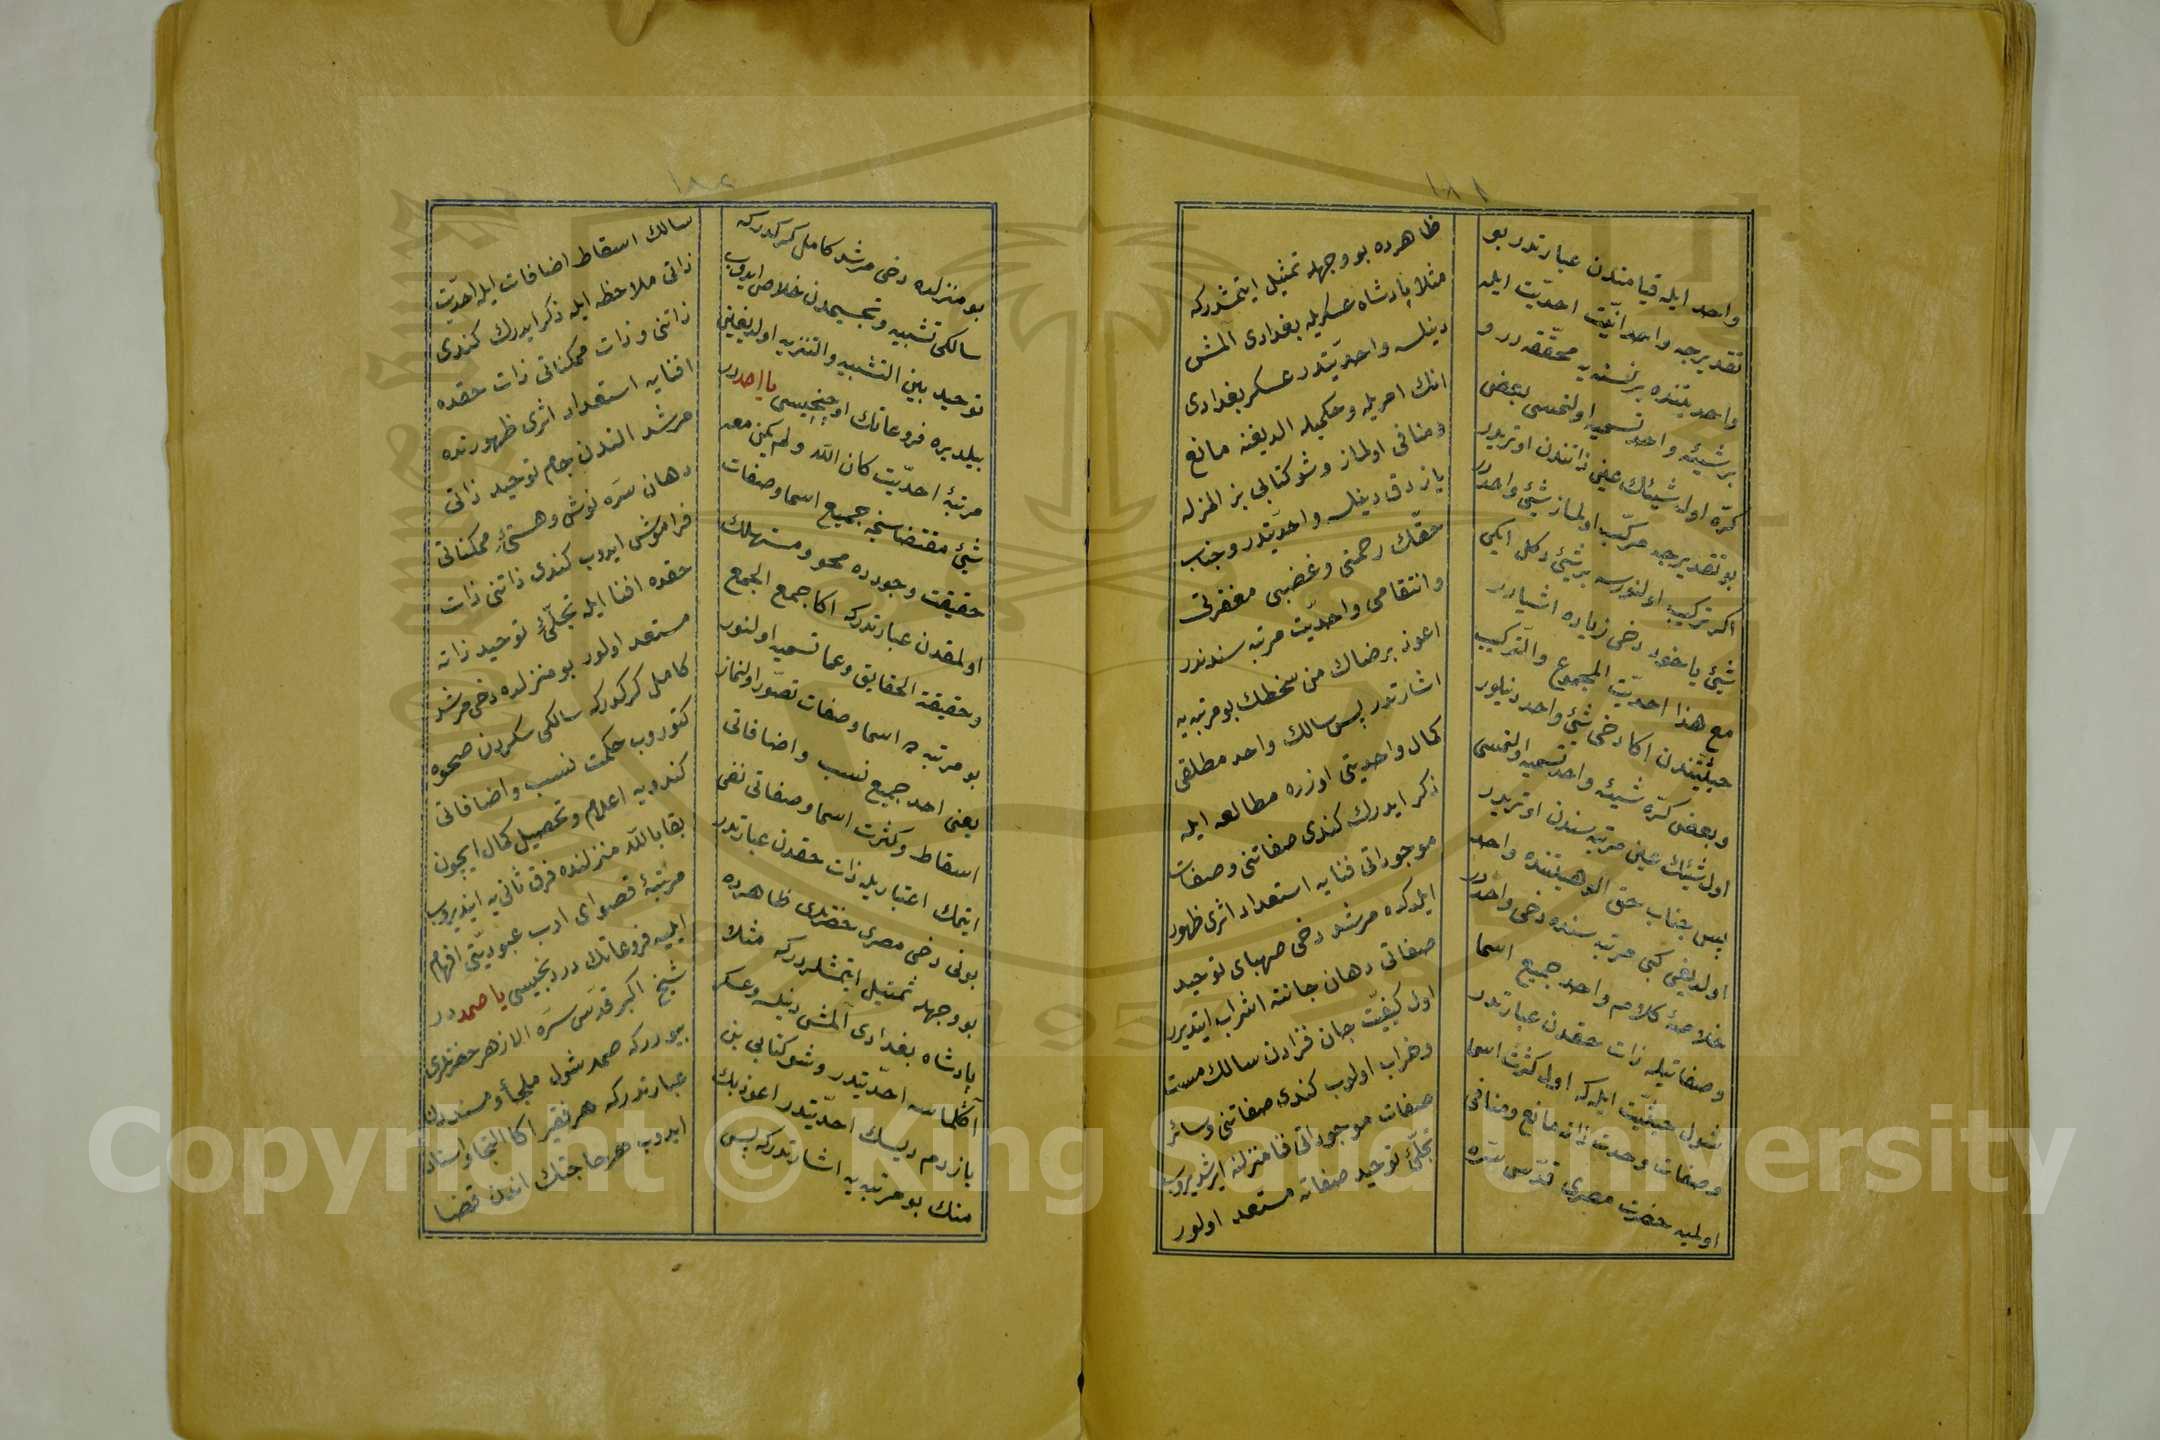 ١٨١
واحد ايله قيامتدن عبارتدر بو
تقديرجه واحدانيّت احديّت ايله
واحديتنده برنسنه يه محقّقه درر و
برشيئه واحد تسميه اولنمسى بعض
كرّه اول شيئك عينى ذاتندن اوتريدر
بو تقديرجه مركّب اولماز شيئ واحددر
اكر تركيب اولنورسه برشيئ دكل ايكى
شيئ ياخود دخى زياده اشيادر
مع هذا احديّت المجموع والتركيب
حيثيّتندن اكا دخى شيئ واحد دينلور
وبعض كرّه شيئه واحد تسميه اولنمسى
اول شيئك عينى مرتبه سندن اوتريدر
پس جناب حق الوهيتنده واحد
اولديغى كبى مرتبه سنده دخى واحددر
خلاصۀ كلام واحد جميع اسما
وصفاتيله ذات حقدن عبارتدر
شول حيثيّت ايله كه اول كثرت اسما
وصفات وحدت ذاته مانع ومنافى
اولميه حضرت مصرى قدّس سرّه
ظاهرده بو وجهله تمثيل ايتمشدركه
مثلا پادشاه عسكريله بغدادى آلمش
دينلسه واحديّتدر عسكر بغدادى
انك امريله وحكميله الديغنه مانع
ومنافى اولماز وشو كتابى بز المزله
يازدق دينلسه واحديّتدر وجناب
حقّك رحمتى وغضبى مغفرتى
وانتقامى واحديّت مرتبه سندندر
اعوذ برضاك من سخطك بو مرتبه يه
اشارتدر پس سالك واحد مطلقى
كمال واحديتى اوزره مطالعه ايله
ذكر ايدرك كندى صفاتنى وصفات
موجوداتى فنايه استعداد اثرى ظهور
ايلدكده مرشد دخى صهباى توحيد
صفاتى دهان جاننه اشراب ايتديرر
اول كيفيّت جان فزادن سالك مست
وخراب اولوب كندى صفاتنى وسائر
صفات موجوداتى فنا منزلنه ايرشديروب
تجلّئ توحيد صفاته مستعد اولور
١٨٢
بو منزلده دخى مرشد كامل كركدركه
سالكى تشبيه وتجسيمدن خلاص ايدوب
توحيد بين التشبيه والتنزيه اولديغينى
بيلديره فروعاتك اوچنجيسى يا احددر
مرتبۀ احديّت كان الله ولم يكن معه
شيئ مقتضاسنجه جميع اسما وصفات
حقيقت وجودده محو ومستهلك
اولمقدن عبارتدركه اكا جمع الجمع
وحقيقة الحقايق وعما تسميه اولنور
بو مرتبه ده اسما وصفات تصوّر اولنماز
يعنى احد جميع نسب واضافاتى
اسقاط وكثرت اسما وصفاتى نفى
ايتمك اعتباريله ذات حقدن عبارتدر
بونى دخى مصرى حضرتلرى ظاهرده
بو وجهله تمثيل ايتمشلردركه مثلا
پادشاه بغدادى آلمش دينلسه وعسكر
آكلماسه احديّتدر وشو كتابى بن
يازدم ديسك احديّتدر اعوذ بك
منك بو مرتبه يه اشارتدركه پس
سالك اسقاط اضافات ايله احديّت
ذاتى ملاحظه ايله ذكر ايدرك كندى
ذاتنى وذات ممكناتى ذات حقده
افنايه استعداد اثرى ظهورنده
مرشد الندن جام توحيد ذاتى
دهان سرّه نوش وهستئ ممكناتى
فراموش ايدوب كندى ذاتنى ذات
حقده افنا ايله تجلّئ توحيد ذاته
مستعد اولور بو منزلده دخى مرشد
كامل كركدركه سالكى سكردن صحوه
كتوروب حكمت نسب واضافاتى
كندويه اعلام وتحصيل كمال ايچون
بقا بالله منزلنده فرق ثانى يه اينديروب
مرتبۀ قصواى ادب عبوديّتى افهام
ايليه فروعاتك دردنجيسى يا صمددر
شيخ اكبر قدّس سرّه الازهر حضرتلرى
بيوردركه صمد شول ملجأ ومسنددن
عبارتدركه هر فقير اكا التجا واستناد
ايدوب هر حاجتك اندن قضا